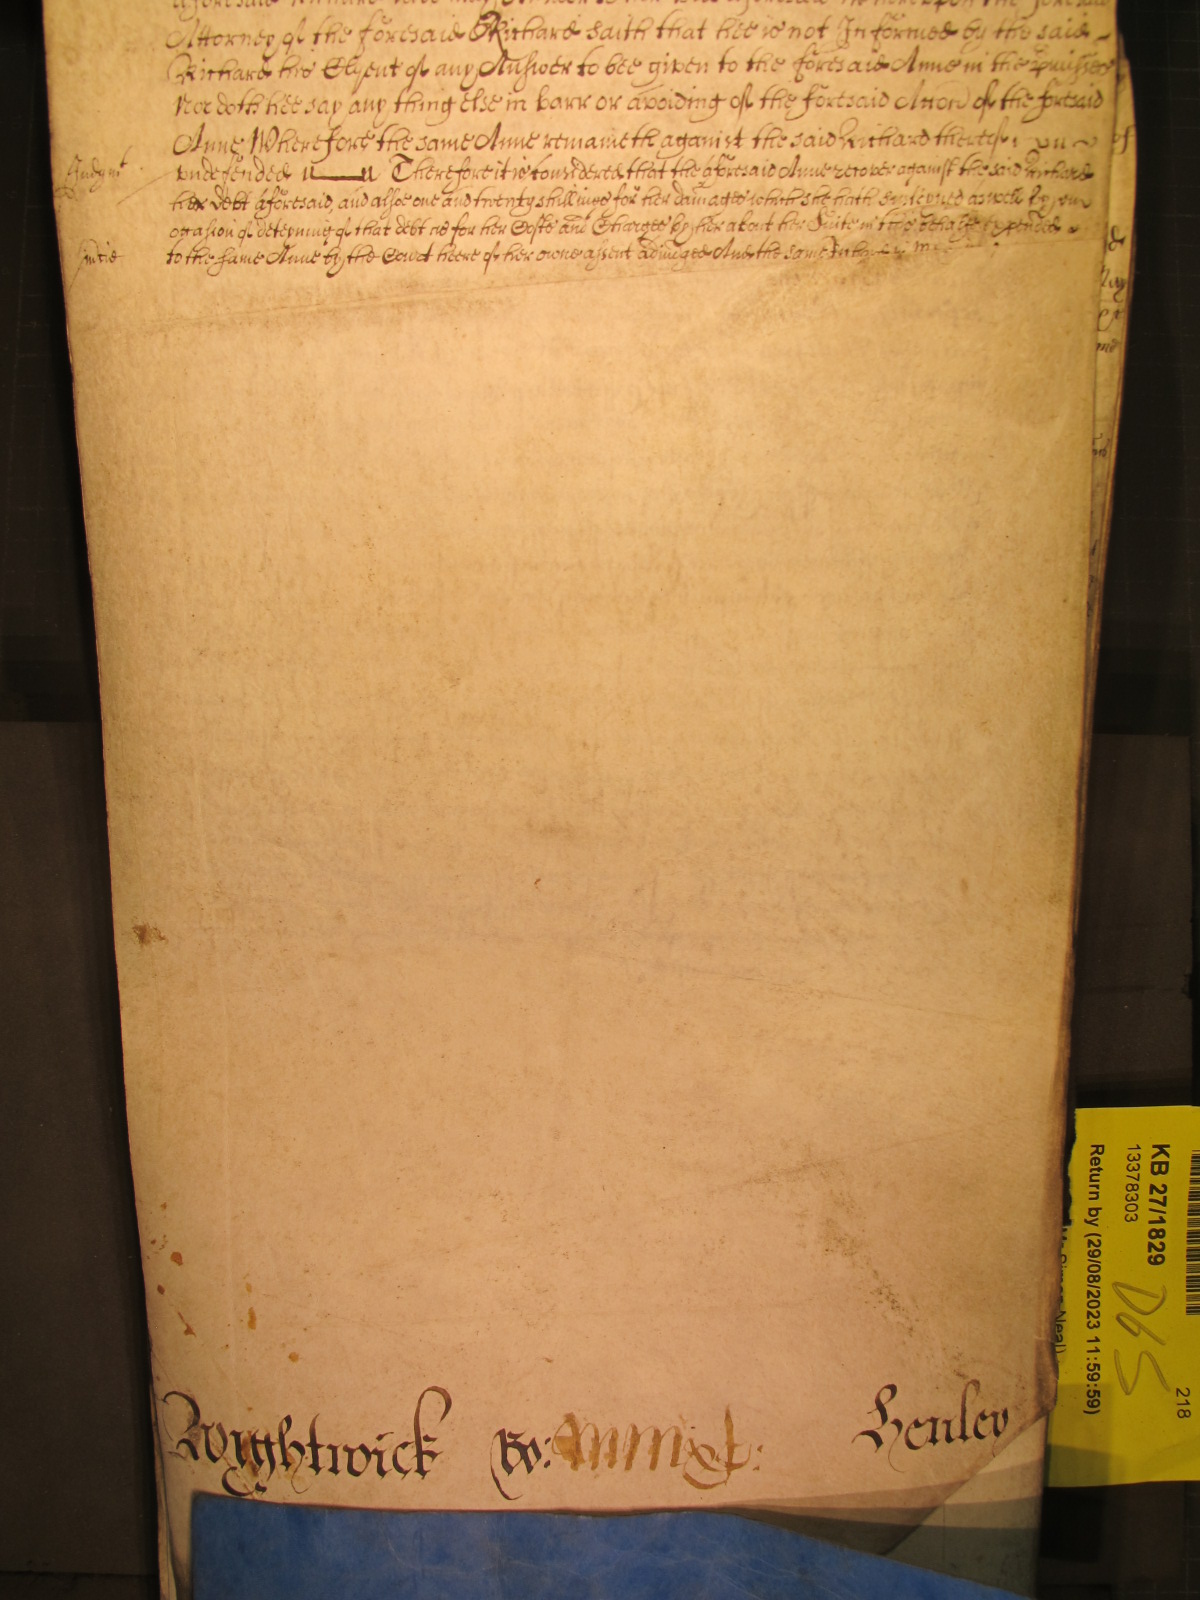 Attorney of the foresaid Richard saith that hee is not Informed by the said
Richard his Clyent of any Answer to bee given to the foresaid Anne in the
Nor doth hee say any thing else in barr or avoiding of the foresaid Accon of the foresaid
Anne Wherefore the same Anne remaineth against the said Richard thereof
undefended Therefore it is Considered that the aforesaid Anne recover against the said Richard
her Debt aforesaid, and alsoe one and twenty shillings for her damages which she hath susteyned aswell by
occasion of deteyning of that debt as for her Costs and Charges by her about her Suite in this behalfe expended
to the same Anne by the Court heere of her owne assent adiudged And the same
Judgmt
Wightwick
Ro:
Henley
KB 27/1829
13378303
Return by (29/08/2023 11:59:59)
D65
218